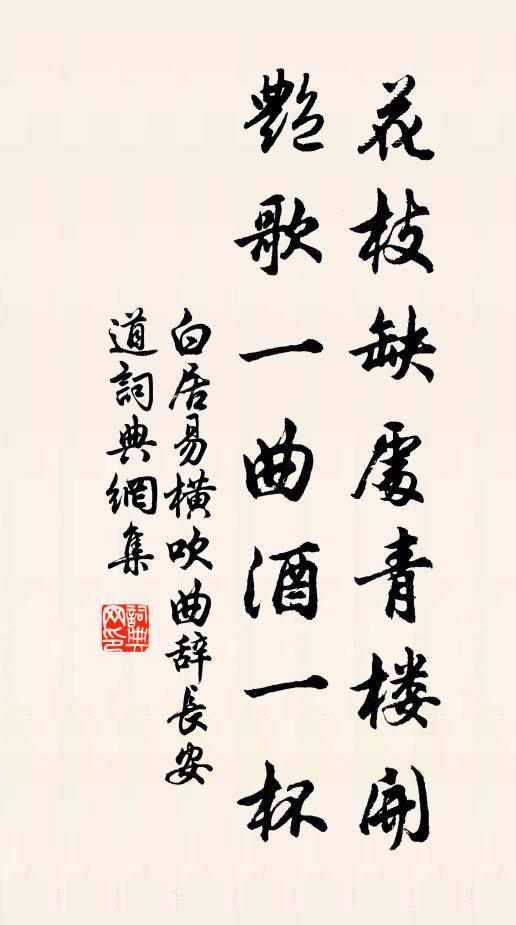 花枝缺處青楼開
艷歌一曲酒一杯
白居易橫吹曲辞長安
道詞典網集
詞典
网印